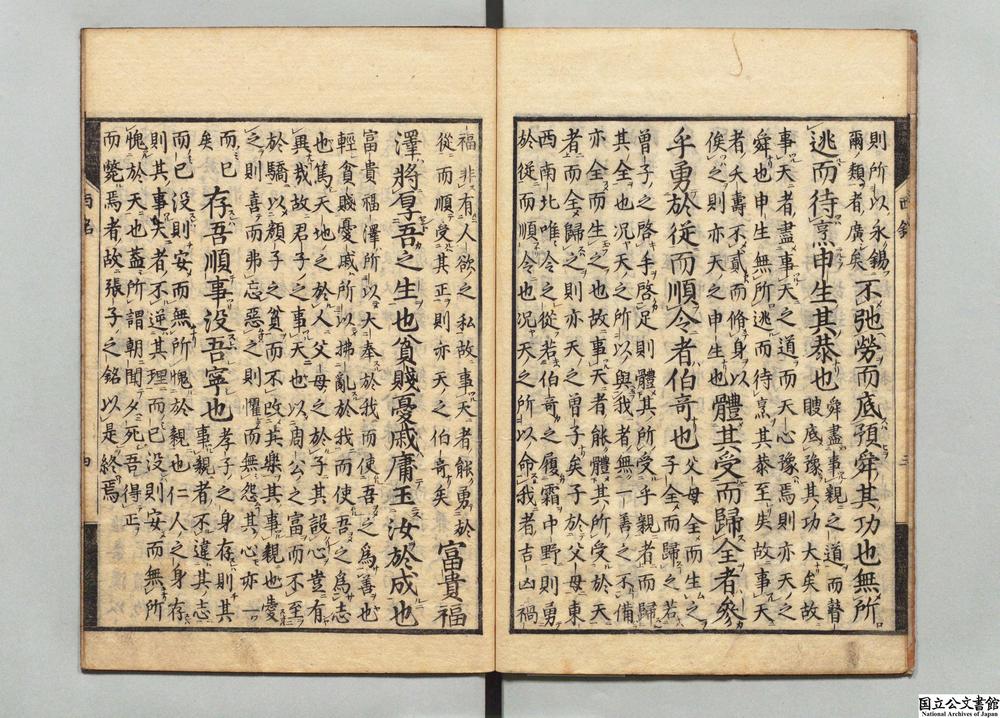 則所以永錫
爾類者廣矣
不弛勞而底預舜其功也無所
逃而待烹申生其恭也
舜盡事親之道而瞽
瞍底豫其功大矣故
事天者盡事天之道而天心豫焉則亦天之
舜也申生無所逃而待烹其恭至矣故事天
者夭壽不貳而脩身以
俟之則亦天之申生也
體其受而歸全者參
乎勇於從而順令者伯奇也
父母全而生之
子全而歸之若
曾子之啓手啓足則體其所受乎親者而歸
其全也况天之所以與我者無一善之不備
亦全而生之也故事天者能體其所受於天
者而全歸之則亦天之曾子矣子於父母東
西南北唯令之從若伯奇之履霜中野則勇
於從而順令也况天之所以命我者吉凶禍
福非有人欲之私故事天者能勇於
從而順受其正則亦天之伯奇矣
富貴福
澤將厚吾之生也貧賤憂戚庸玉汝於成也
富貴福澤所以大奉於我而使吾之為善也
輕貧賤憂戚所以拂亂於我而使吾之為志
也篤天地之於人父母之於子其設心豈有
異哉故君子之事天也以周公之富而不至
於驕以顏子之貧而不改其樂其事親也愛
之則喜而弗忘惡之則懼而無怨其心亦一
而已
矣
存吾順事没吾寧也
孝子之身存則其
事親者不違其志
而已没則安而無所愧於親也仁人之身存
則其事天者不逆其理而已没則安而無所
愧於天也蓋所謂朝聞夕死吾得正
而斃焉者故張子之銘以是終焉
国立公文書館
National Archives of Japan